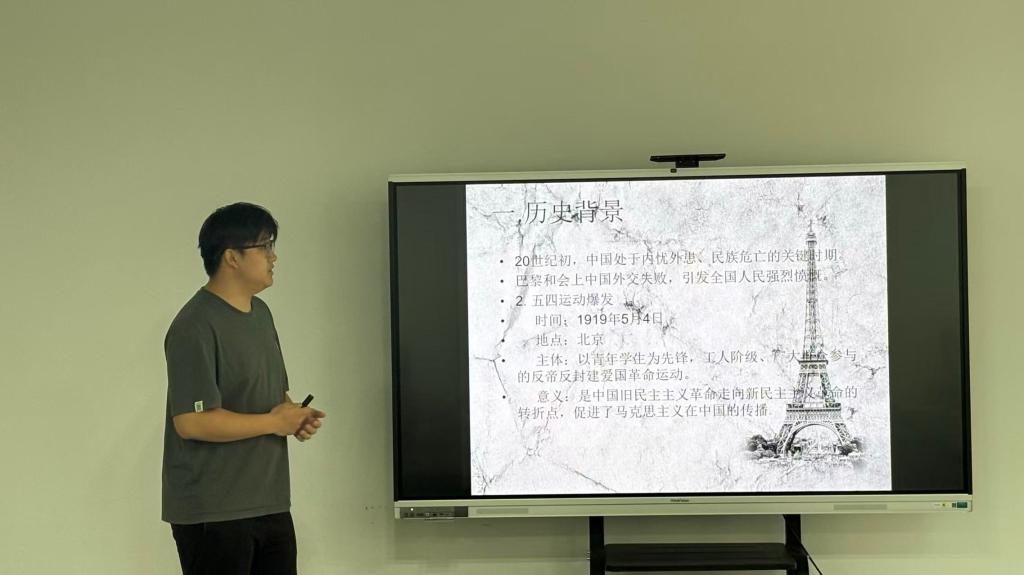 一.历史背景
20世纪初，中国处于内忧外患、民族危亡的关键时期。
巴黎和会上中国外交失败，引发全国人民强烈愤慨。
2. 五四运动爆发
时间：1919年5月4日
地点：北京
主体：以青年学生为先锋，工人阶级、广大群众参与
的反帝反封建爱国革命运动。
意义：是中国旧民主主义革命走向新民主主义革命的
转折点，促进了马克思主义在中国的传播